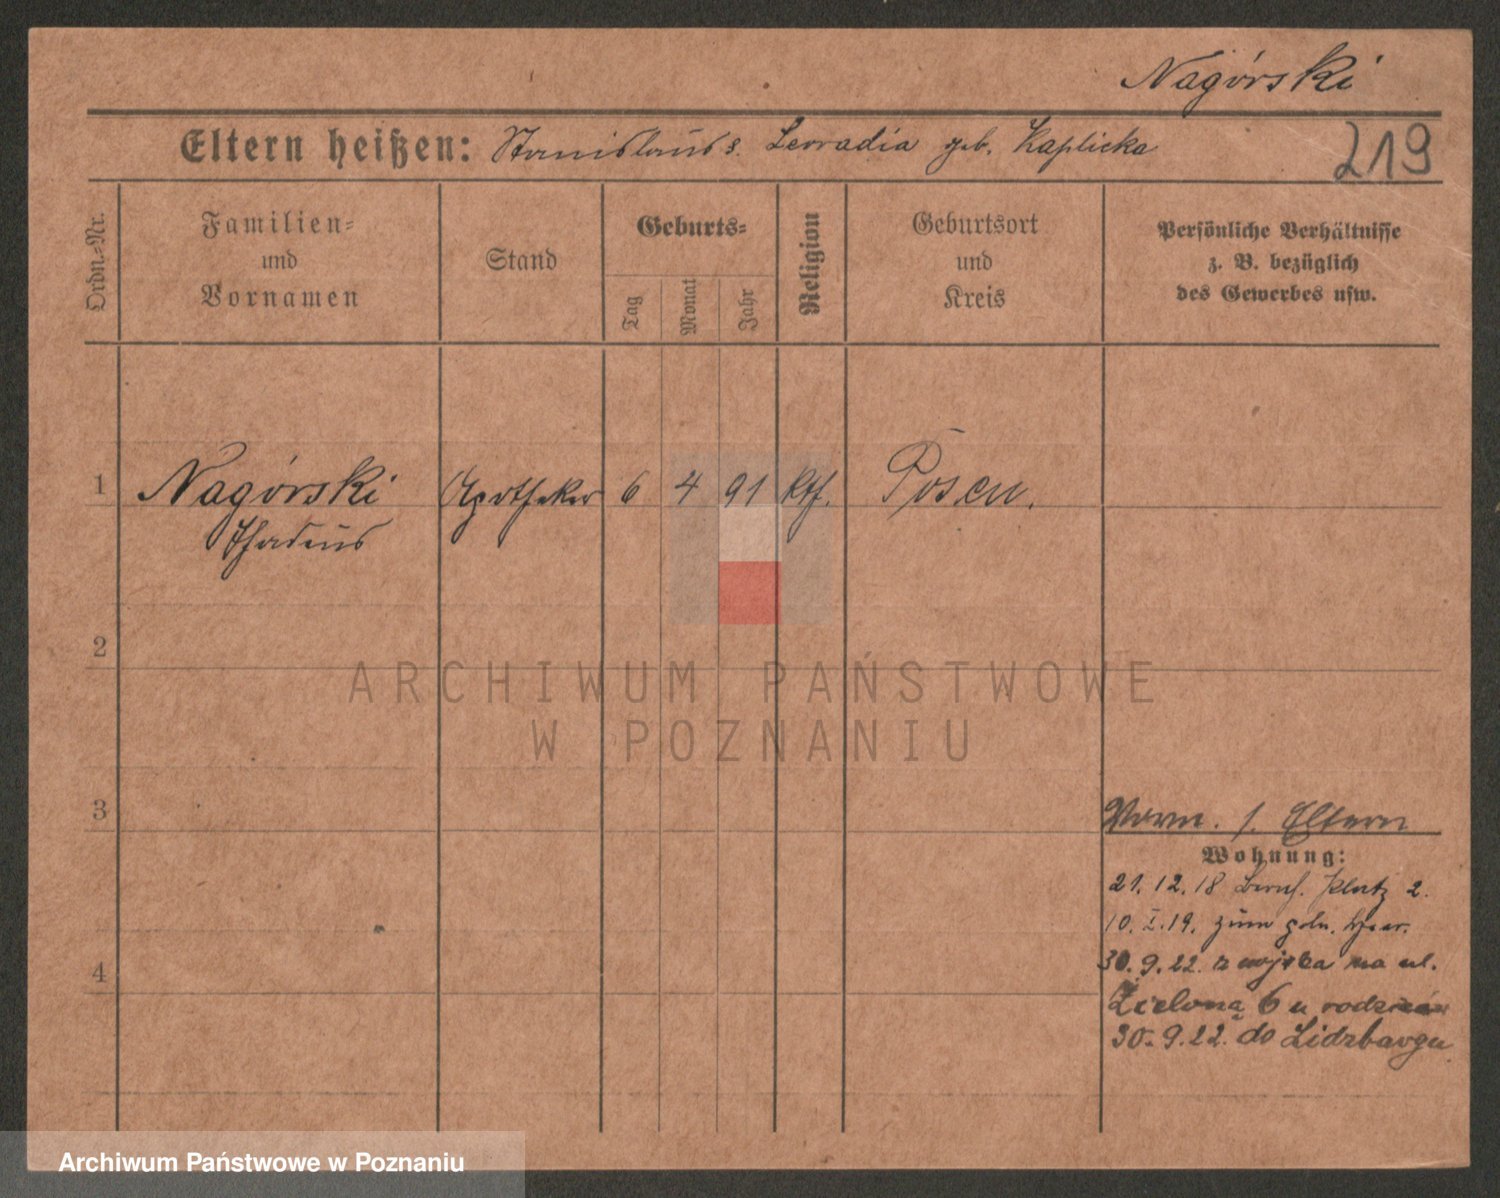 Nagórski
Eltern heißen: Stanislaus s. Leocadia geb. Kaplicka
219
Ordn.-Nr.
Familien-
und
Vornamen
Stand
Geburts-
Tag
Monat
Jahr
Religion
Geburtsort
und
Kreis
Persönliche Verhältnisse
z. B. bezüglich
des Gewerbes usw.
1 Nagórski Apotheker 6 4 91 kth. Posen.
Thadeus
2
ARCHIWUM PAŃSTWOWE
W POZNANIU
3
Vorm. s. Eltern
Wohnung:
21.12.18 Bernh. Platz 2.
10.I.19. zum poln. Heer.
30.9.22. z wojska na ul.
4
Zielona 6 u rodziców
30.9.22. do Lidzbarga
Archiwum Państwowe w Poznaniu